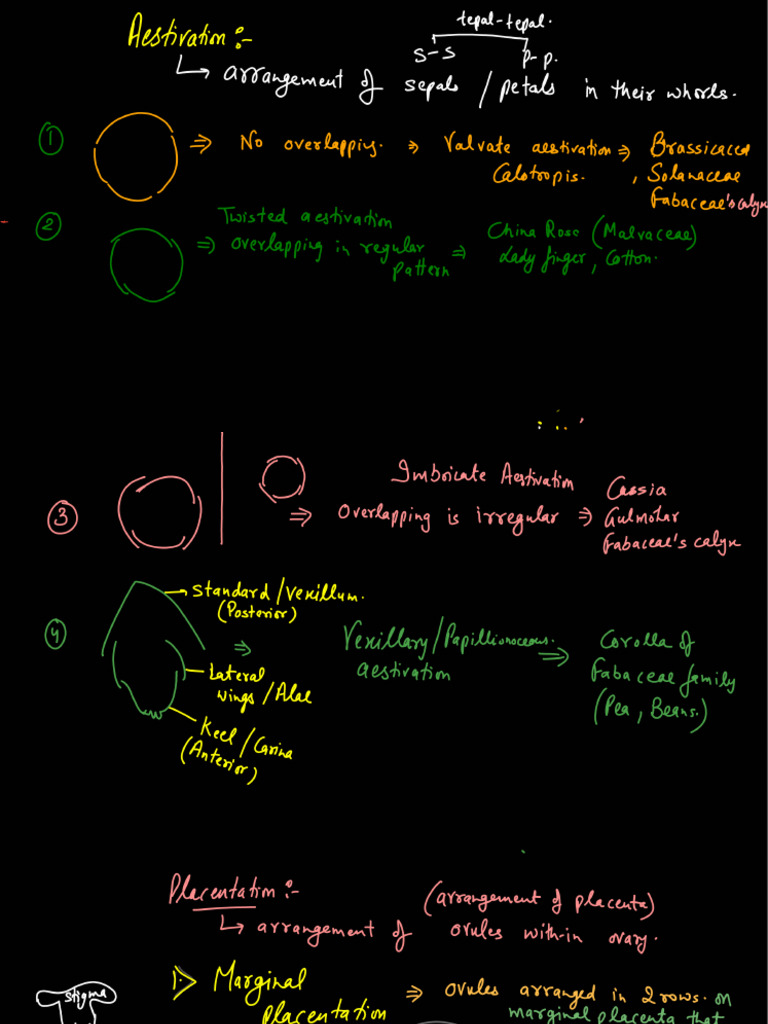 Aestivation:-
tepal-tepal.
s-s p-p.
↳ arrangement of sepals / petals in their whorls.
① ⇒ No overlapping. ⇒ Valvate aestivation ⇒ Brassicacea
Calotropis. , Solanaceae
Fabaceae's calyx
② Twisted aestivation
⇒ overlapping in regular pattern ⇒ China Rose (Malvaceae)
Lady finger, Cotton.
③ Imbricate Aestivation
⇒ Overlapping is irregular ⇒ Cassia
Gulmohar
Fabaceae's calyx
④ Standard/Vexillum.
(Posterior)
Lateral
wings/Alae
Keel/Carina
(Anterior)
⇒ Vexillary/Papillionoceous.
aestivation ⇒ Corolla of
Fabaceae family
(Pea, Beans.)
Placentation:-
(arrangement of placenta)
↳ arrangement of ovules with-in ovary.
stigma
1> Marginal
placentation ⇒ ovules arranged in 2 rows. on
marginal placenta that